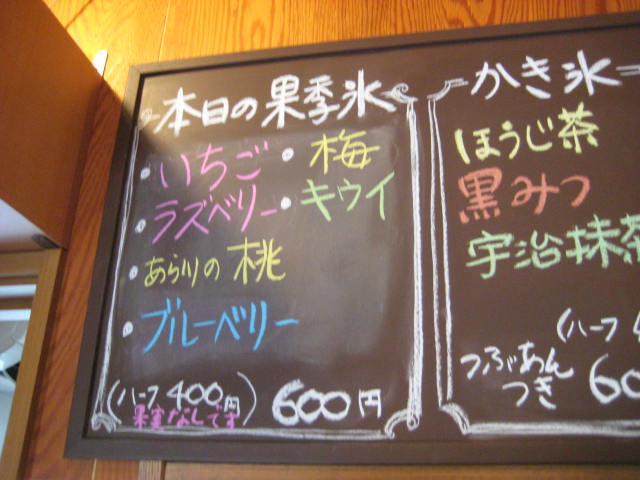 本日の果季氷
・いちご ・梅
・ラズベリー ・キウイ
・あら川の桃
・ブルーベリー
(ハーフ 400円) 600円
果実なしです
かき氷
ほうじ茶
黒みつ
宇治抹茶
(ハーフ
つぶあん
つき 60